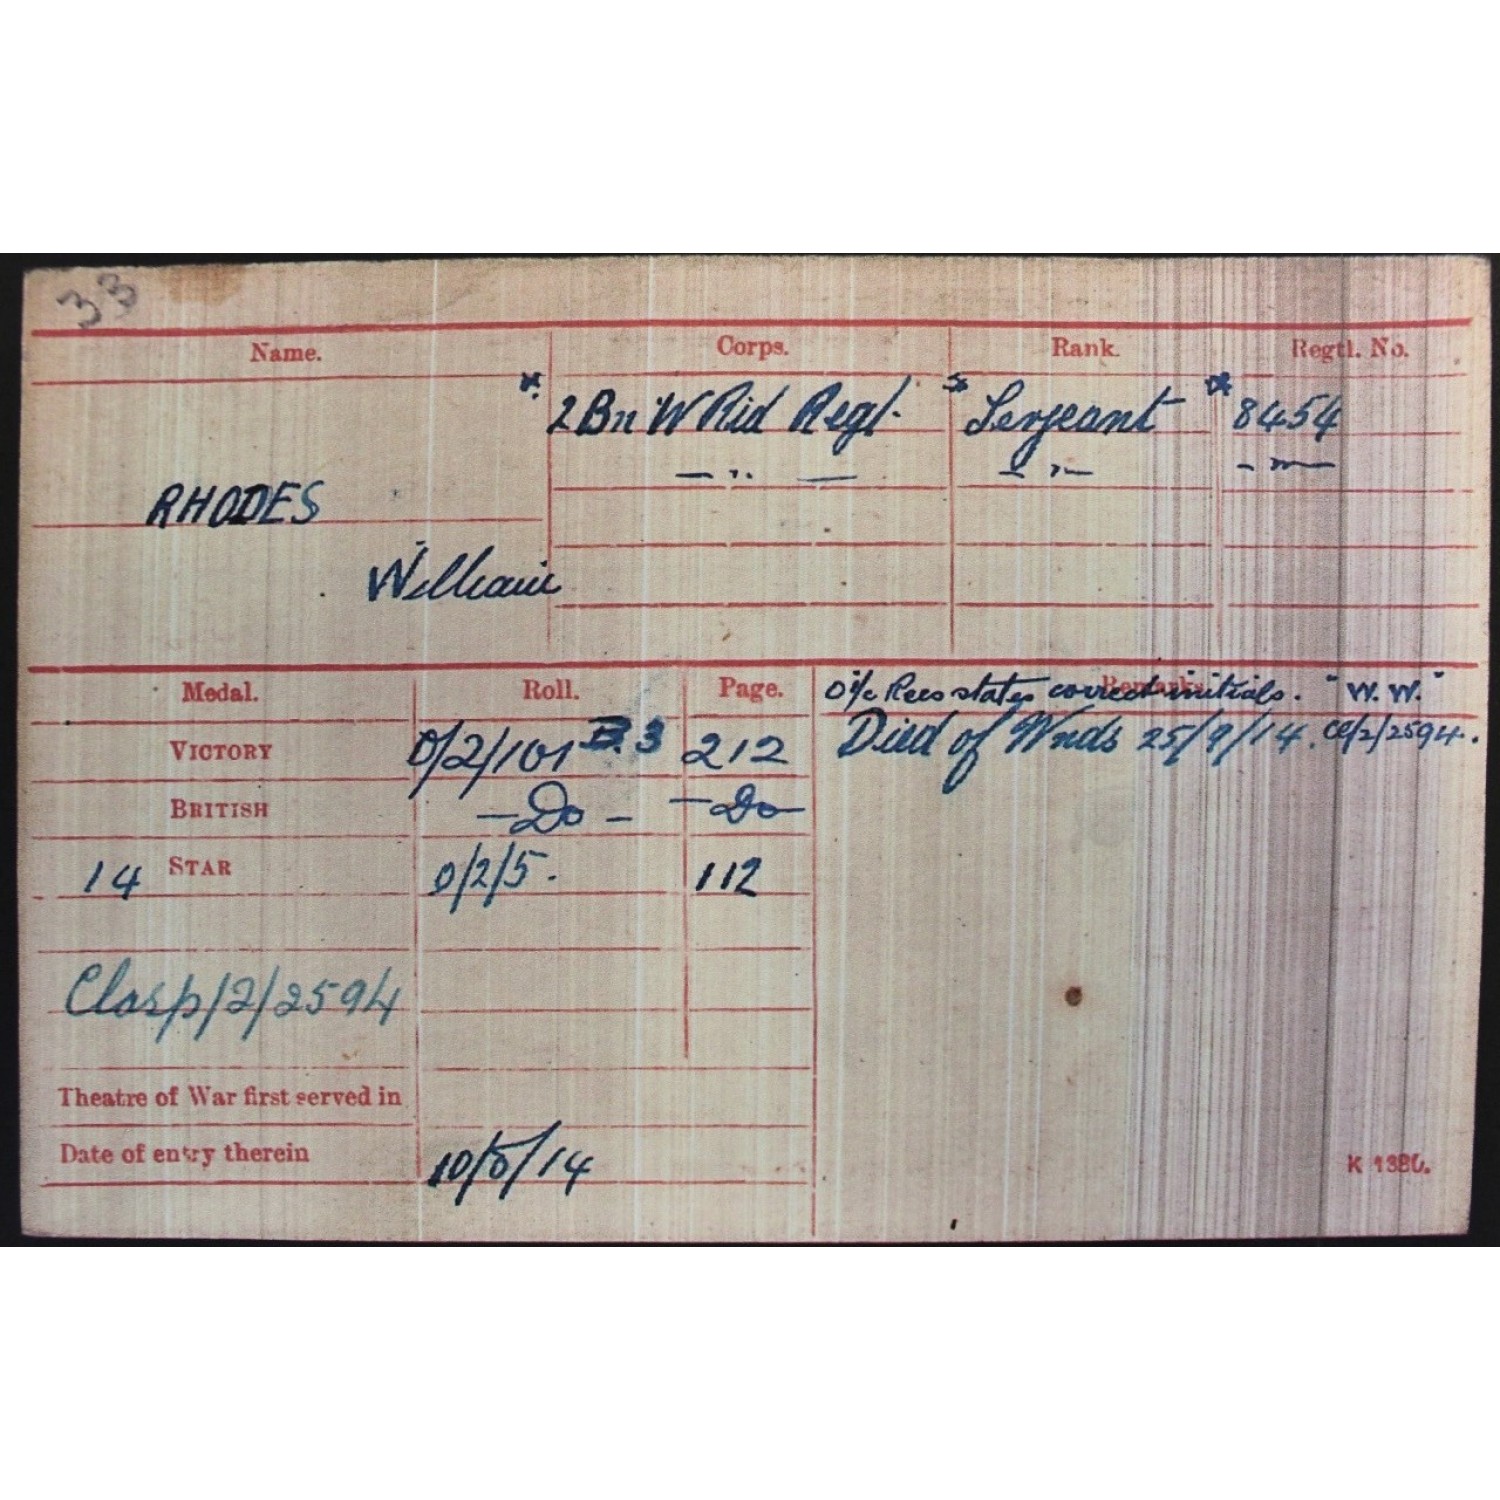 33
Name. Corps. Rank. Regtl. No.
* 2 Bn W Rid Regt. * Sergeant * 8454
— " — — " — — " —
RHODES
William
Medal. Roll. Page. Remarks.
O i/c Recs states correct initials. "W. W."
VICTORY O/2/101 B. 3 212 Died of Wnds 25/9/14. Cl/2/2594.
BRITISH — Do — — Do —
14 STAR O/2/5. 112
Clasp/2/2594
Theatre of War first served in
Date of entry therein
K 1380.